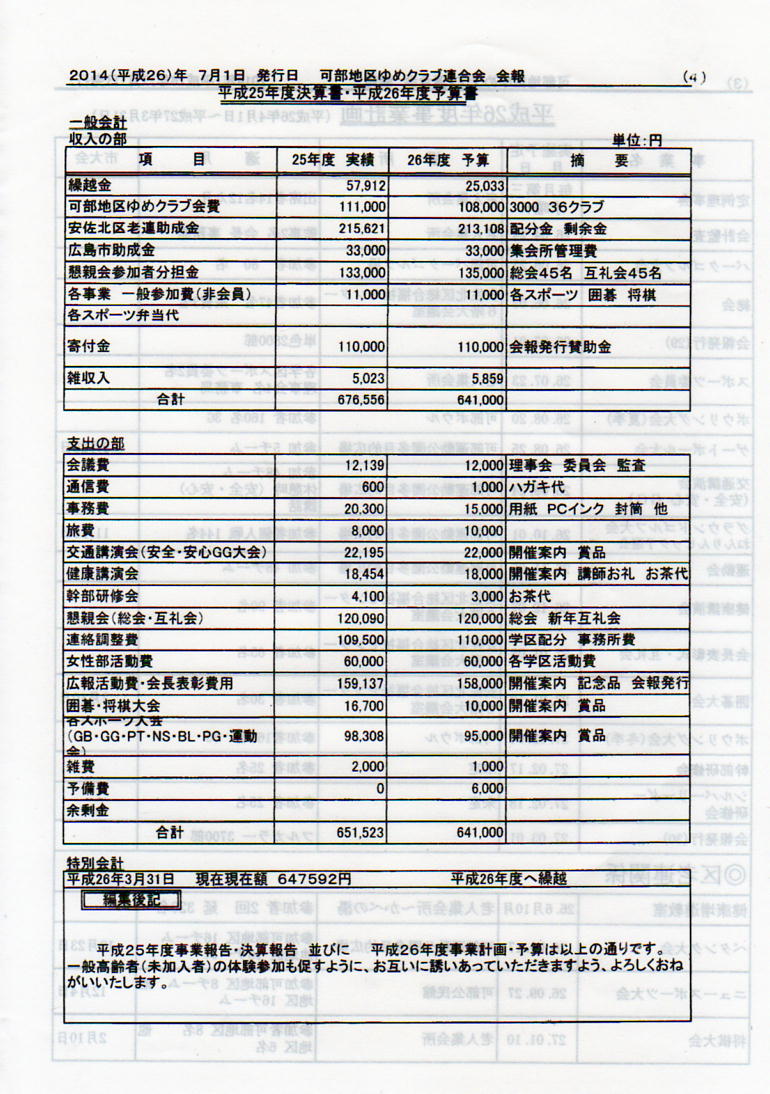 2014(平成26)年 7月1日 発行日 可部地区ゆめクラブ連合会 会報 (4)
平成25年度決算書・平成26年度予算書
一般会計
収入の部 単位:円
項 目 25年度 実績 26年度 予算 摘 要
繰越金 57,912 25,033
可部地区ゆめクラブ会費 111,000 108,000 3000 36クラブ
安佐北区老連助成金 215,621 213,108 配分金 剰余金
広島市助成金 33,000 33,000 集会所管理費
懇親会参加者分担金 133,000 135,000 総会45名 互礼会45名
各事業 一般参加費(非会員) 11,000 11,000 各スポーツ 囲碁 将棋
各スポーツ弁当代
寄付金 110,000 110,000 会報発行賛助金
雑収入 5,023 5,859
合計 676,556 641,000
支出の部
会議費 12,139 12,000 理事会 委員会 監査
通信費 600 1,000 ハガキ代
事務費 20,300 15,000 用紙 PCインク 封筒 他
旅費 8,000 10,000
交通講演会(安全・安心GG大会) 22,195 22,000 開催案内 賞品
健康講演会 18,454 18,000 開催案内 講師お礼 お茶代
幹部研修会 4,100 3,000 お茶代
懇親会(総会・互礼会) 120,090 120,000 総会 新年互礼会
連絡調整費 109,500 110,000 学区配分 事務所費
女性部活動費 60,000 60,000 各学区活動費
広報活動費・会長表彰費用 159,137 158,000 開催案内 記念品 会報発行
囲碁・将棋大会 16,700 10,000 開催案内 賞品
各スポーツ大会
(GB・GG・PT・NS・BL・PG・運動 98,308 95,000 開催案内 賞品
会)
雑費 2,000 1,000
予備費 0 6,000
余剰金
合計 651,523 641,000
特別会計
平成26年3月31日 現在現在額 647592円 平成26年度へ繰越
編集後記
平成25年度事業報告・決算報告 並びに 平成26年度事業計画・予算は以上の通りです。
一般高齢者(未加入者)の体験参加も促すように、お互いに誘いあっていただきますよう、よろしくおね
がいいたします。